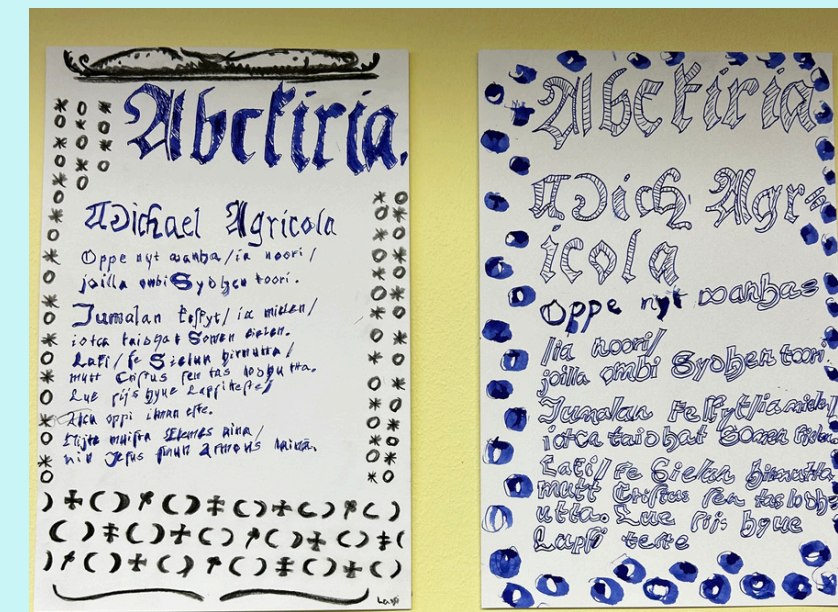 Abckiria.
Michael Agricola
Oppe nyt wanha/ia noori/
joilla ombi Sydhen toori.
Jumalan keskyt/ia mielen/
iotca taidhat Somen kielen.
Laki/se Sielun hirmutta/
mutt Cristus sen tas lodhutta.
Lue sijs hyue Lapsi teste/
Alcu oppi ilman este.
Nijte muista Elemes aina/
nin Jesus sinun Armons laina.
Abckiria
Mich Agr=
icola
Oppe nyt wanhas
/ia noori/
joilla ombi Sydhen toori
Jumalan Keskyt/ia mielen/
iotca taidhat Somen kielen
Laki/se Sielun hirmutta
mutt Cristus sen tas lodh
utta. Lue sijs hyue
Lapsi teste